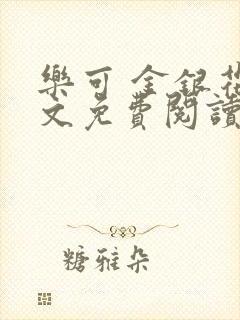 樂可 金銀花
文免費閱讀
糖雅朵